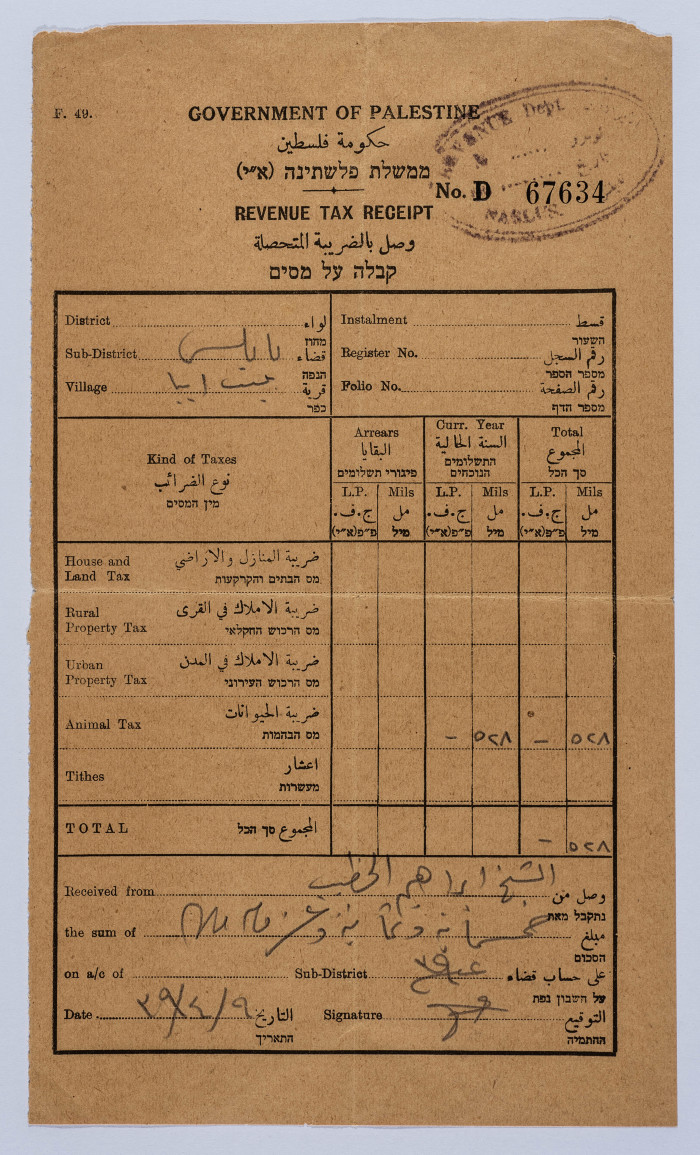 F. 49.
GOVERNMENT OF PALESTINE
حكومة فلسطين
ממשלת פלשתינה (א״י)
REVENUE Dept
NABLUS
No. D 67634
REVENUE TAX RECEIPT
وصل بالضريبة المتحصلة
קבלה על מסים
District لواء Instalment قسط
מחוז השעור
Sub-District نابلس قضاء Register No. رقم السجل
הנפה מספר הספר
Village بيت ايبا قرية Folio No. رقم الصفحة
כפר מספר הדף
Kind of Taxes Arrears Curr. Year Total
نوع الضرائب البقايا السنة الحالية المجموع
מין המסים פיגורי תשלומים התשלומים הנוכחים סך הכל
L.P. Mils L.P. Mils L.P. Mils
ج.ف. مل ج.ف. مل ج.ف. مل
פ״פ(א״י) מיל פ״פ(א״י) מיל פ״פ(א״י) מיל
House and ضريبة المنازل والاراضي
Land Tax מס הבתים והקרקעות
Rural ضريبة الاملاك في القرى
Property Tax מס הרכוש החקלאי
Urban ضريبة الاملاك في المدن
Property Tax מס הרכוש העירוני
Animal Tax ضريبة الحيوانات
מס הבהמות – ٥٢٨ – ٥٢٨
Tithes اعشار
מעשרות
TOTAL المجموع סך הכל – ٥٢٨
Received from الشيخ ابراهيم الخطيب وصل من
נתקבל מאת
the sum of خمسمائة وثمانية وعشرون مل مبلغ
הסכום
on a/c of Sub-District على حساب قضاء
על חשבון נפת
Date ٣٩/٤/٩ التاريخ Signature التوقيع
התאריך החתימה